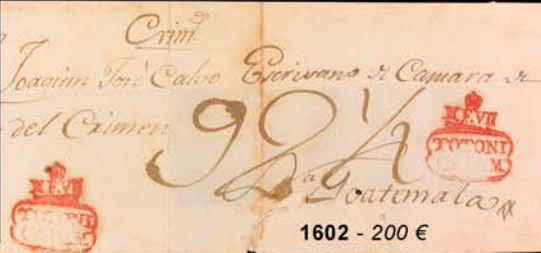 Crim.l
Joaquin José Calvo Escrivano de Camara de
del Crimen
92½
F.VII
TOTONI
Goatemala
1602 - 200 €